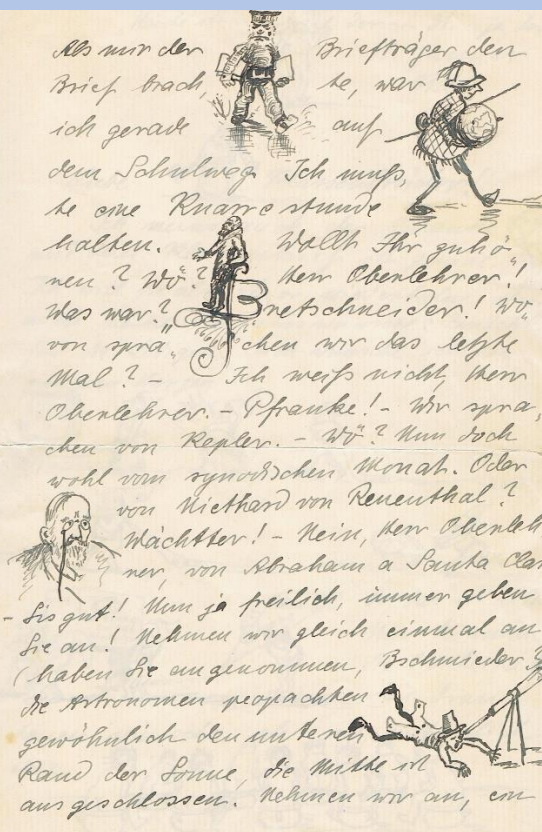 Als mir der Briefträger den
Brief brach, te, war
ich gerade auf
dem Schulweg. Ich muß,
te eine Knappe stunde
halten. Wollt Ihr zuhö,
ren? Wö? Herr Oberlehrer!
Was war? Bretschneider! Wo,
von spra, chen wir das letzte
Mal? – Ich weiß nicht, Herr
Oberlehrer. – Pfranke! – Wir spra,
chen von Kepler. – Wö? Nun doch
wohl vom synodischen Monat. Oder
von Niethard von Reuenthal?
Wächtter! – Nein, Herr Oberleh
rer, von Abraham a Santa Clar
– Sis gut! Nun ja freilich, immer geben
Sie an! Nehmen wir gleich einmal an
(haben Sie angenommen, Bschmieder?
die Astronomen peopachten
gewöhnlich den unteren
Rand der Sonne, die Mitte ist
ausgeschlossen. Nehmen wir an, ein